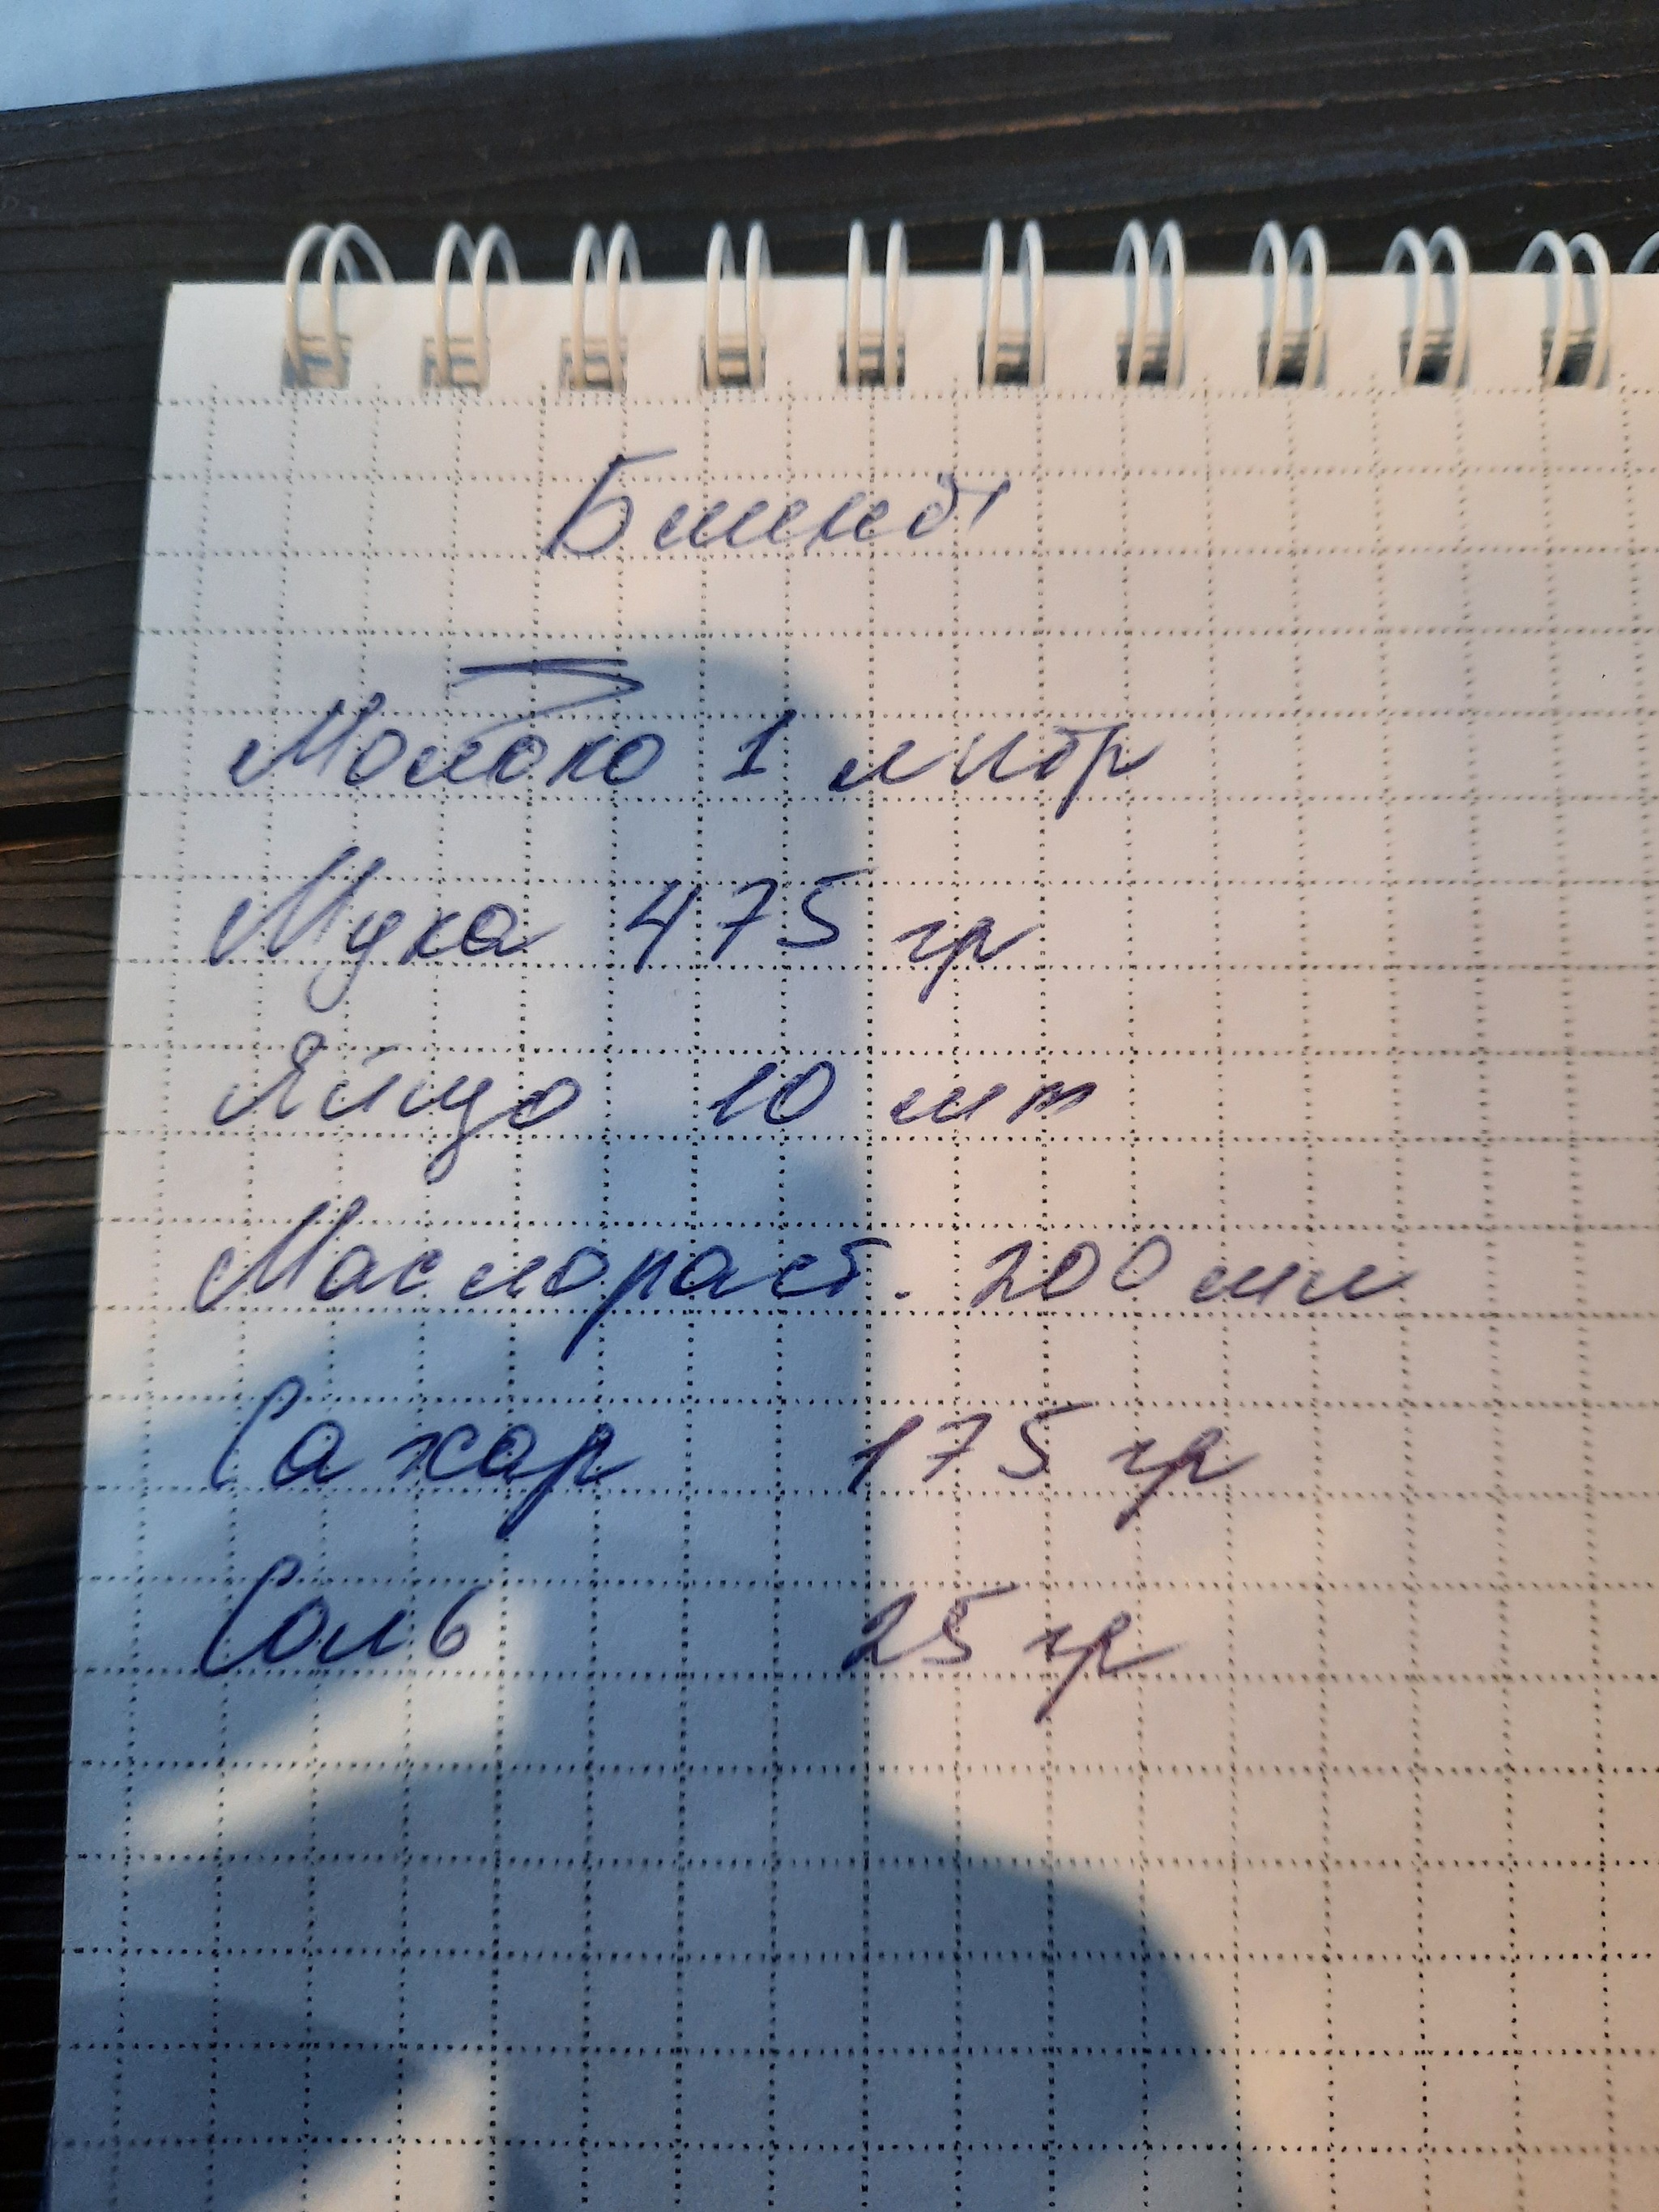 Блины
Молоко 1 литр
Мука 475 гр
Яйцо 10 шт
Масло раст. 200 мл
Сахар 175 гр
Соль 25 гр